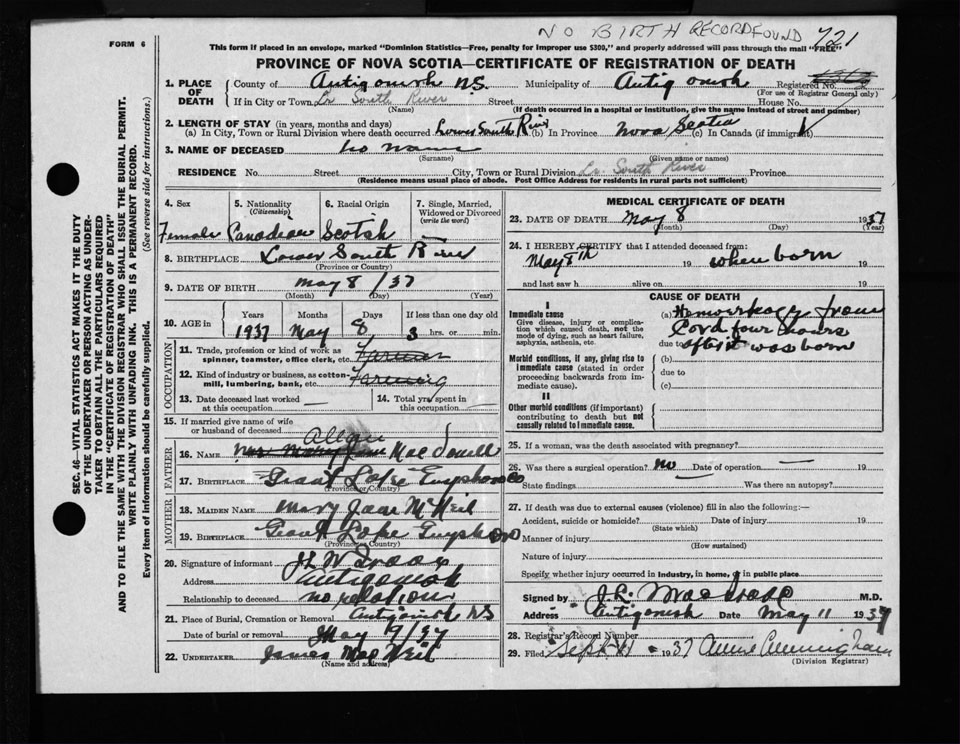 NO BIRTH RECORD FOUND 721
FORM 6
This form if placed in an envelope, marked "Dominion Statistics—Free, penalty for improper use $300," and properly addressed will pass through the mail "FREE"
PROVINCE OF NOVA SCOTIA—CERTIFICATE OF REGISTRATION OF DEATH
1. PLACE OF DEATH
County of Antigonish N.S. Municipality of Antigonish Registered No.
(For use of Registrar General only)
If in City or Town Lr South River Street House No.
(Name) (If death occurred in a hospital or institution, give the name instead of street and number)
2. LENGTH OF STAY (in years, months and days)
(a) In City, Town or Rural Division where death occurred Lower South River (b) In Province Nova Scotia (c) In Canada (if immigrant)
3. NAME OF DECEASED no name
(Surname) (Given name or names)
RESIDENCE No. Street City, Town or Rural Division Lr. South River Province
(Residence means usual place of abode. Post Office Address for residents in rural parts not sufficient)
SEC. 46—VITAL STATISTICS ACT MAKES IT THE DUTY
OF THE UNDERTAKER OR PERSON ACTING AS UNDER-
TAKER TO OBTAIN ALL THE PARTICULARS REQUIRED
IN THE "CERTIFICATE OF REGISTRATION OF DEATH"
AND TO FILE THE SAME WITH THE DIVISION REGISTRAR WHO SHALL ISSUE THE BURIAL PERMIT.
WRITE PLAINLY WITH UNFADING INK. THIS IS A PERMANENT RECORD.
Every item of Information should be carefully supplied. (See reverse side for instructions.)
4. Sex 5. Nationality (Citizenship) 6. Racial Origin 7. Single, Married, Widowed or Divorced (write the word)
Female Canadian Scotish
8. BIRTHPLACE Lower South River
(Province or Country)
9. DATE OF BIRTH May 8 /37
(Month) (Day) (Year)
10. AGE in Years Months Days If less than one day old
1937 May 8 3 hrs. or min.
OCCUPATION
11. Trade, profession or kind of work as spinner, teamster, office clerk, etc. Farmer
12. Kind of industry or business, as cotton-mill, lumbering, bank, etc. Farming
13. Date deceased last worked at this occupation — 14. Total yrs. spent in this occupation —
15. If married give name of wife or husband of deceased
FATHER
Allan
16. NAME Mrs Mary Jane MacDonell
17. BIRTHPLACE Giant Lake Guysboro Co
(Province or Country)
MOTHER
18. MAIDEN NAME Mary Jane McNeil
19. BIRTHPLACE Giant Lake Guysboro
(Province or Country)
20. Signature of informant
Address Antigonish
Relationship to deceased no relation
21. Place of Burial, Cremation or Removal Antigonish NS
Date of burial or removal May 9/37
22. UNDERTAKER James MacNeil
(Name and address)
MEDICAL CERTIFICATE OF DEATH
23. DATE OF DEATH May 8 1937
(Month) (Day) (Year)
24. I HEREBY CERTIFY that I attended deceased from:
May 8th 19 when born 19
and last saw h alive on 19
CAUSE OF DEATH
I
Immediate cause
Give disease, injury or complication which caused death, not the mode of dying, such as heart failure, asphyxia, asthenia, etc.
(a) Hemorrhage from
Cord four hours
due to after it was born
Morbid conditions, if any, giving rise to immediate cause (stated in order proceeding backwards from immediate cause).
(b)
due to
(c)
II
Other morbid conditions (if important) contributing to death but not causally related to immediate cause.
25. If a woman, was the death associated with pregnancy?
26. Was there a surgical operation? no Date of operation — 19
State findings Was there an autopsy?
27. If death was due to external causes (violence) fill in also the following:—
Accident, suicide or homicide? Date of injury 19
(State which)
Manner of injury
(How sustained)
Nature of injury
Specify whether injury occurred in industry, in home, or in public place
Signed by M.D.
Address Antigonish Date May 11 1937
28. Registrar's Record Number
29. Filed Sept 1937 Annie Cunningham
(Division Registrar)